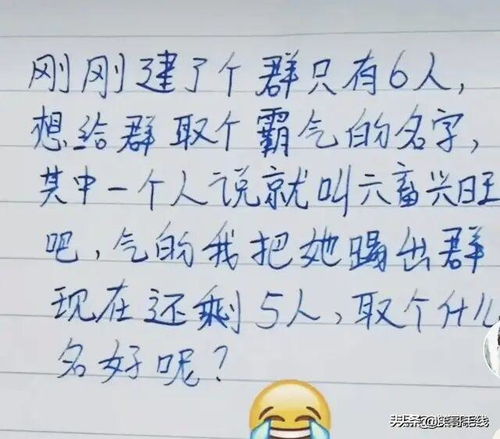 刚刚建了个群只有6人,
想给群取个霸气的名字,
其中一个人说就叫六畜兴旺
吧,气的我把她踢出群
现在还剩5人,取个什么
名好呢?
头条@渠哥毛线